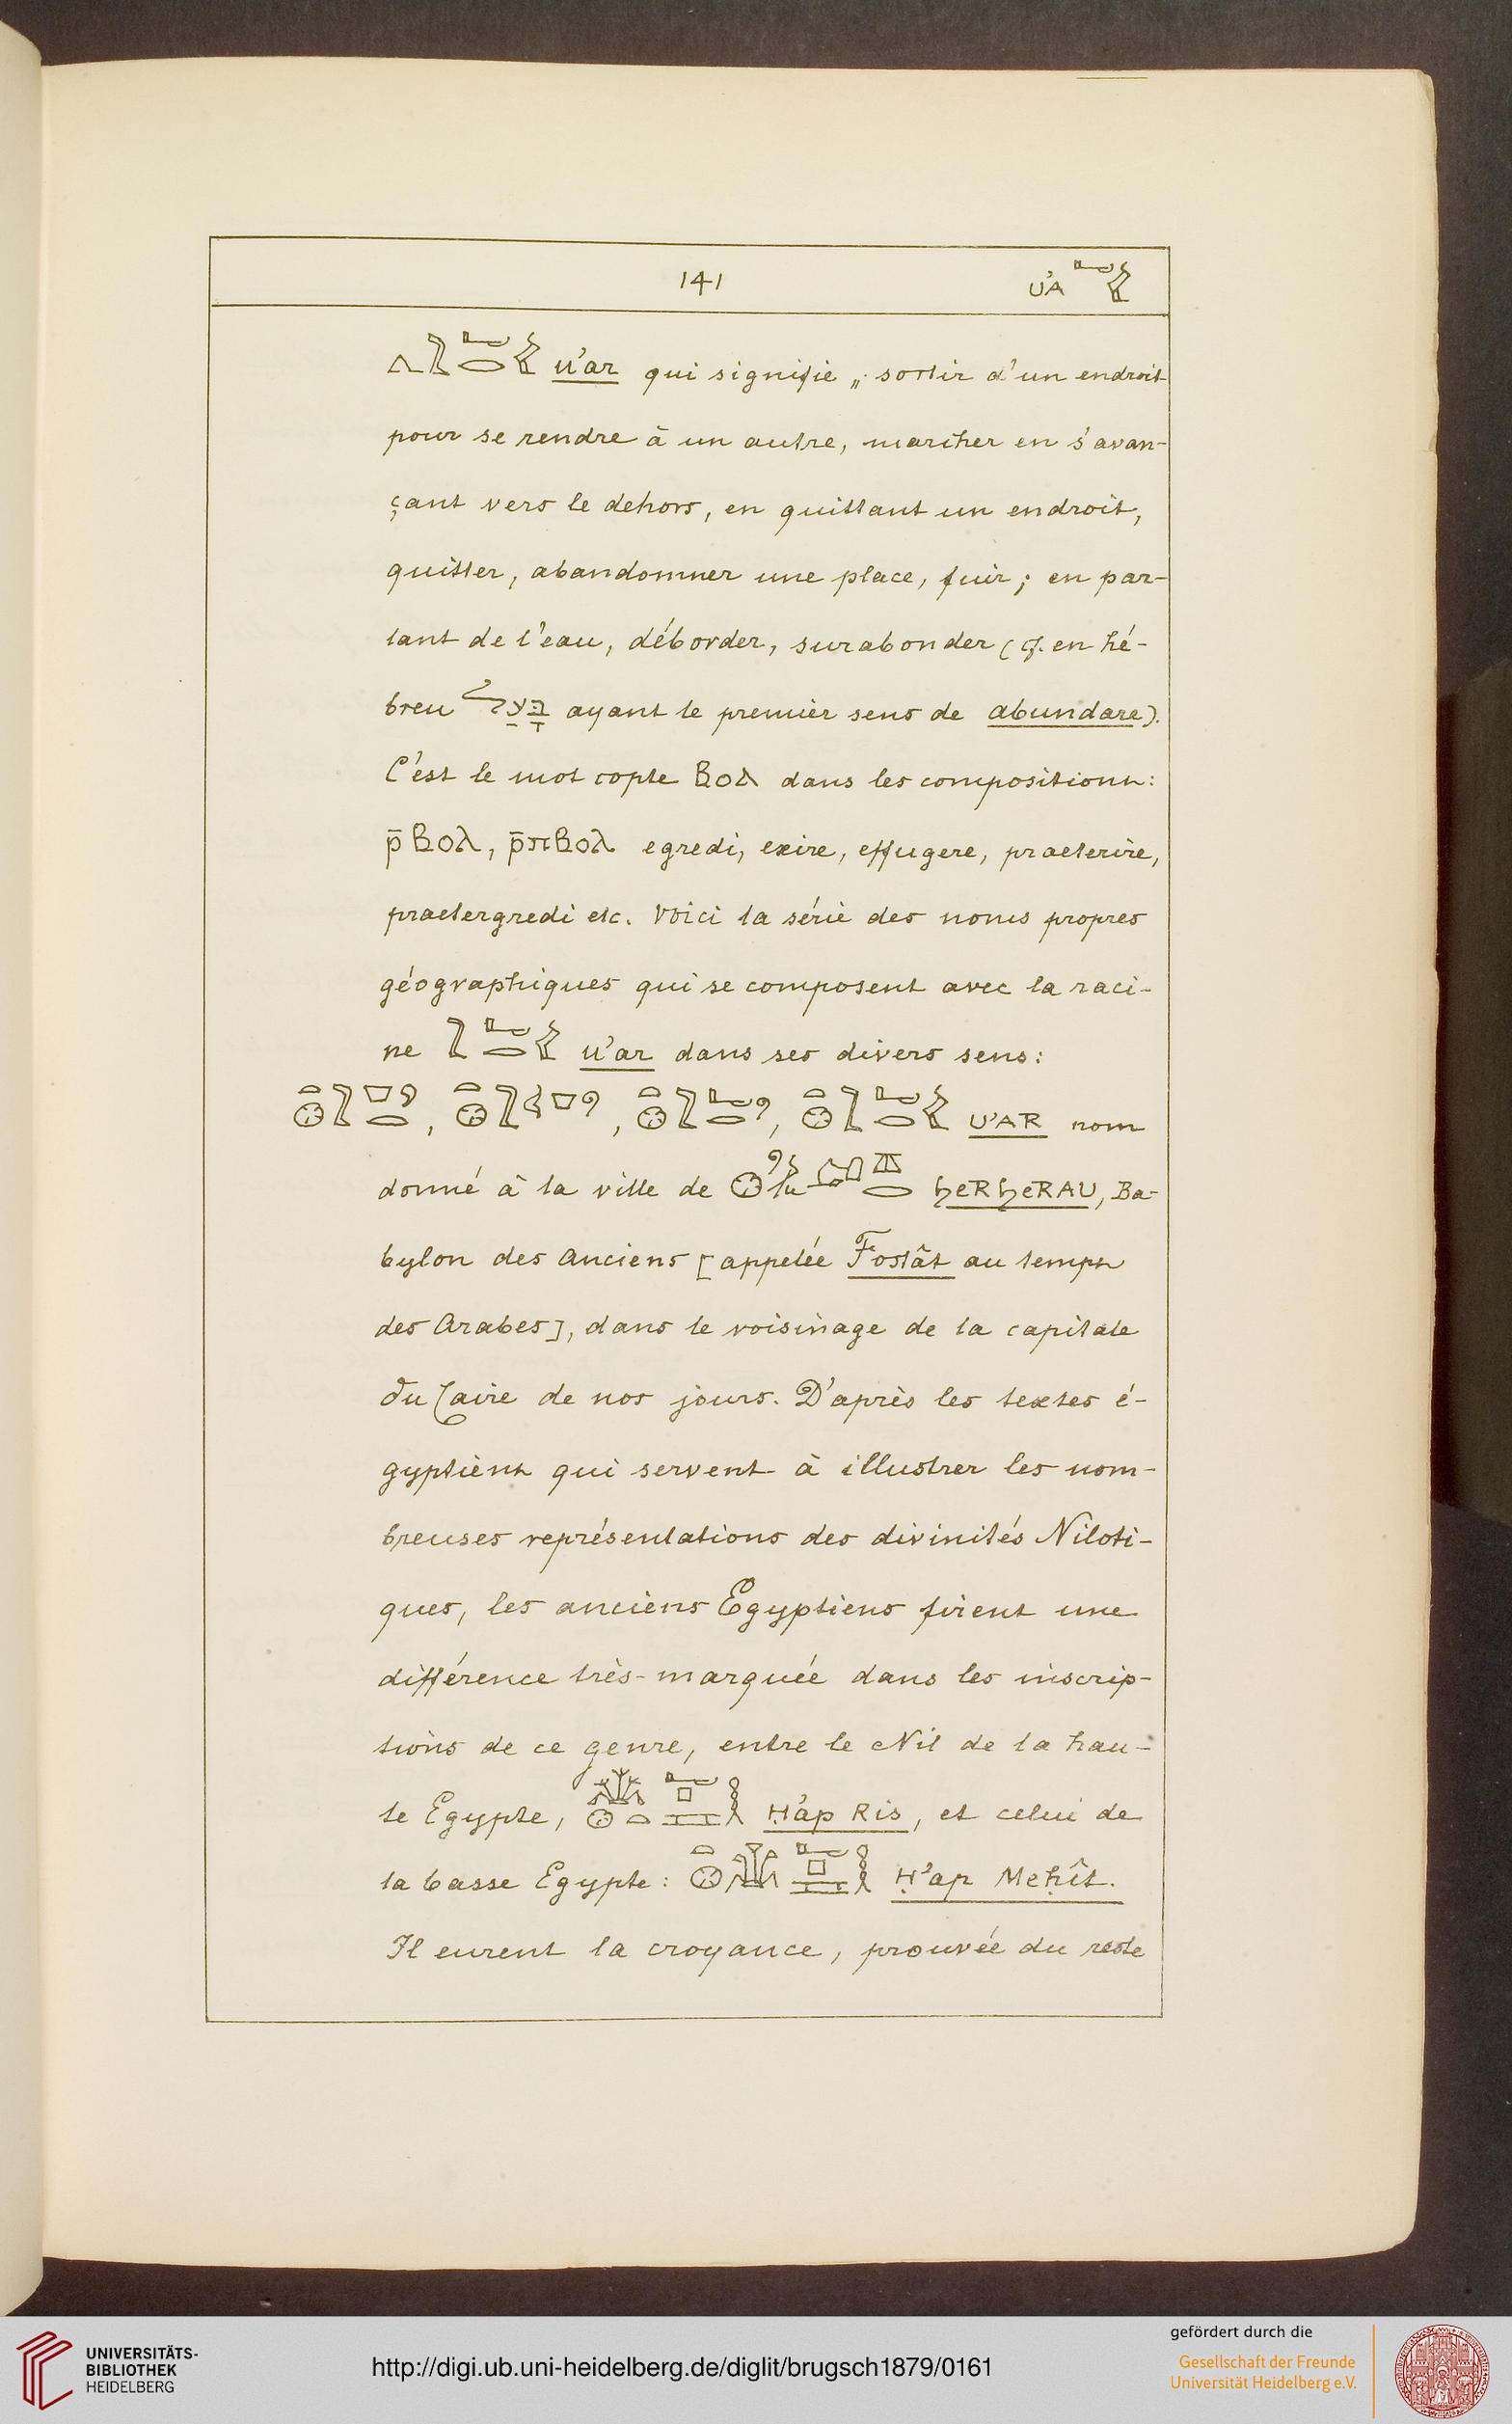 141 U'A
u'ar qui signifie „ sortir d'un endroit
pour se rendre à un autre, marcher en s'avan-
çant vers le dehors, en quittant un endroit,
quitter, abandonner une place, fuir; en par-
lant de l'eau, déborder, surabonder (cf. en hé-
breu ayant le premier sens de abundare).
C'est le mot copte ⲃⲟⲗ dans les compositions:
ⲣ̄ⲃⲟⲗ, ⲣ̄ⲡⲃⲟⲗ egredi, exire, effugere, praeterire,
praetergredi etc. Voici la série des noms propres
géographiques qui se composent avec la raci-
ne u'ar dans ses divers sens:
, , , U'AR nom
donné à la ville de ḫeRḫeRAU, Ba-
bylon des Anciens [appelée Fostât au temps
des Arabes], dans le voisinage de la capitale
du Caire de nos jours. D'après les textes é-
gyptiens qui servent à illustrer les nom-
breuses représentations des divinités Niloti-
ques, les anciens Egyptiens firent une
différence très-marquée dans les inscrip-
tions de ce genre, entre le Nil de la hau-
te Egypte, Ḥ'ap Ris, et celui de
la basse Egypte: Ḥ'ap Meḥît.
Il eurent la croyance, prouvée du reste
UNIVERSITÄTS-
BIBLIOTHEK
HEIDELBERG
http://digi.ub.uni-heidelberg.de/diglit/brugsch1879/0161
gefördert durch die
Gesellschaft der Freunde
Universität Heidelberg e.V.